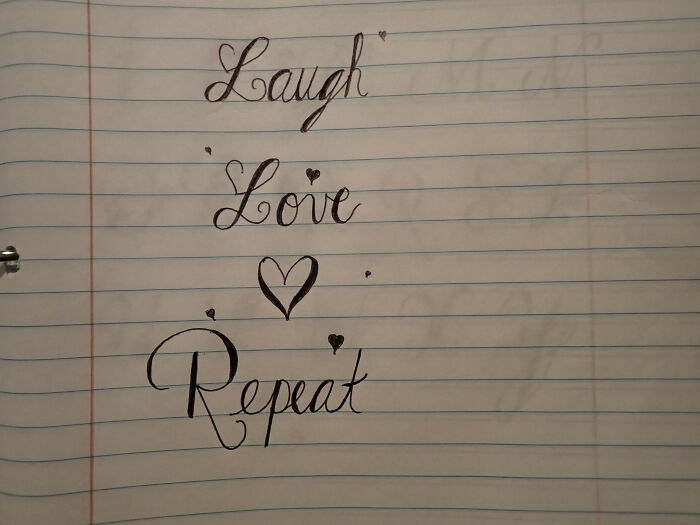 Laugh
Love
Repeat